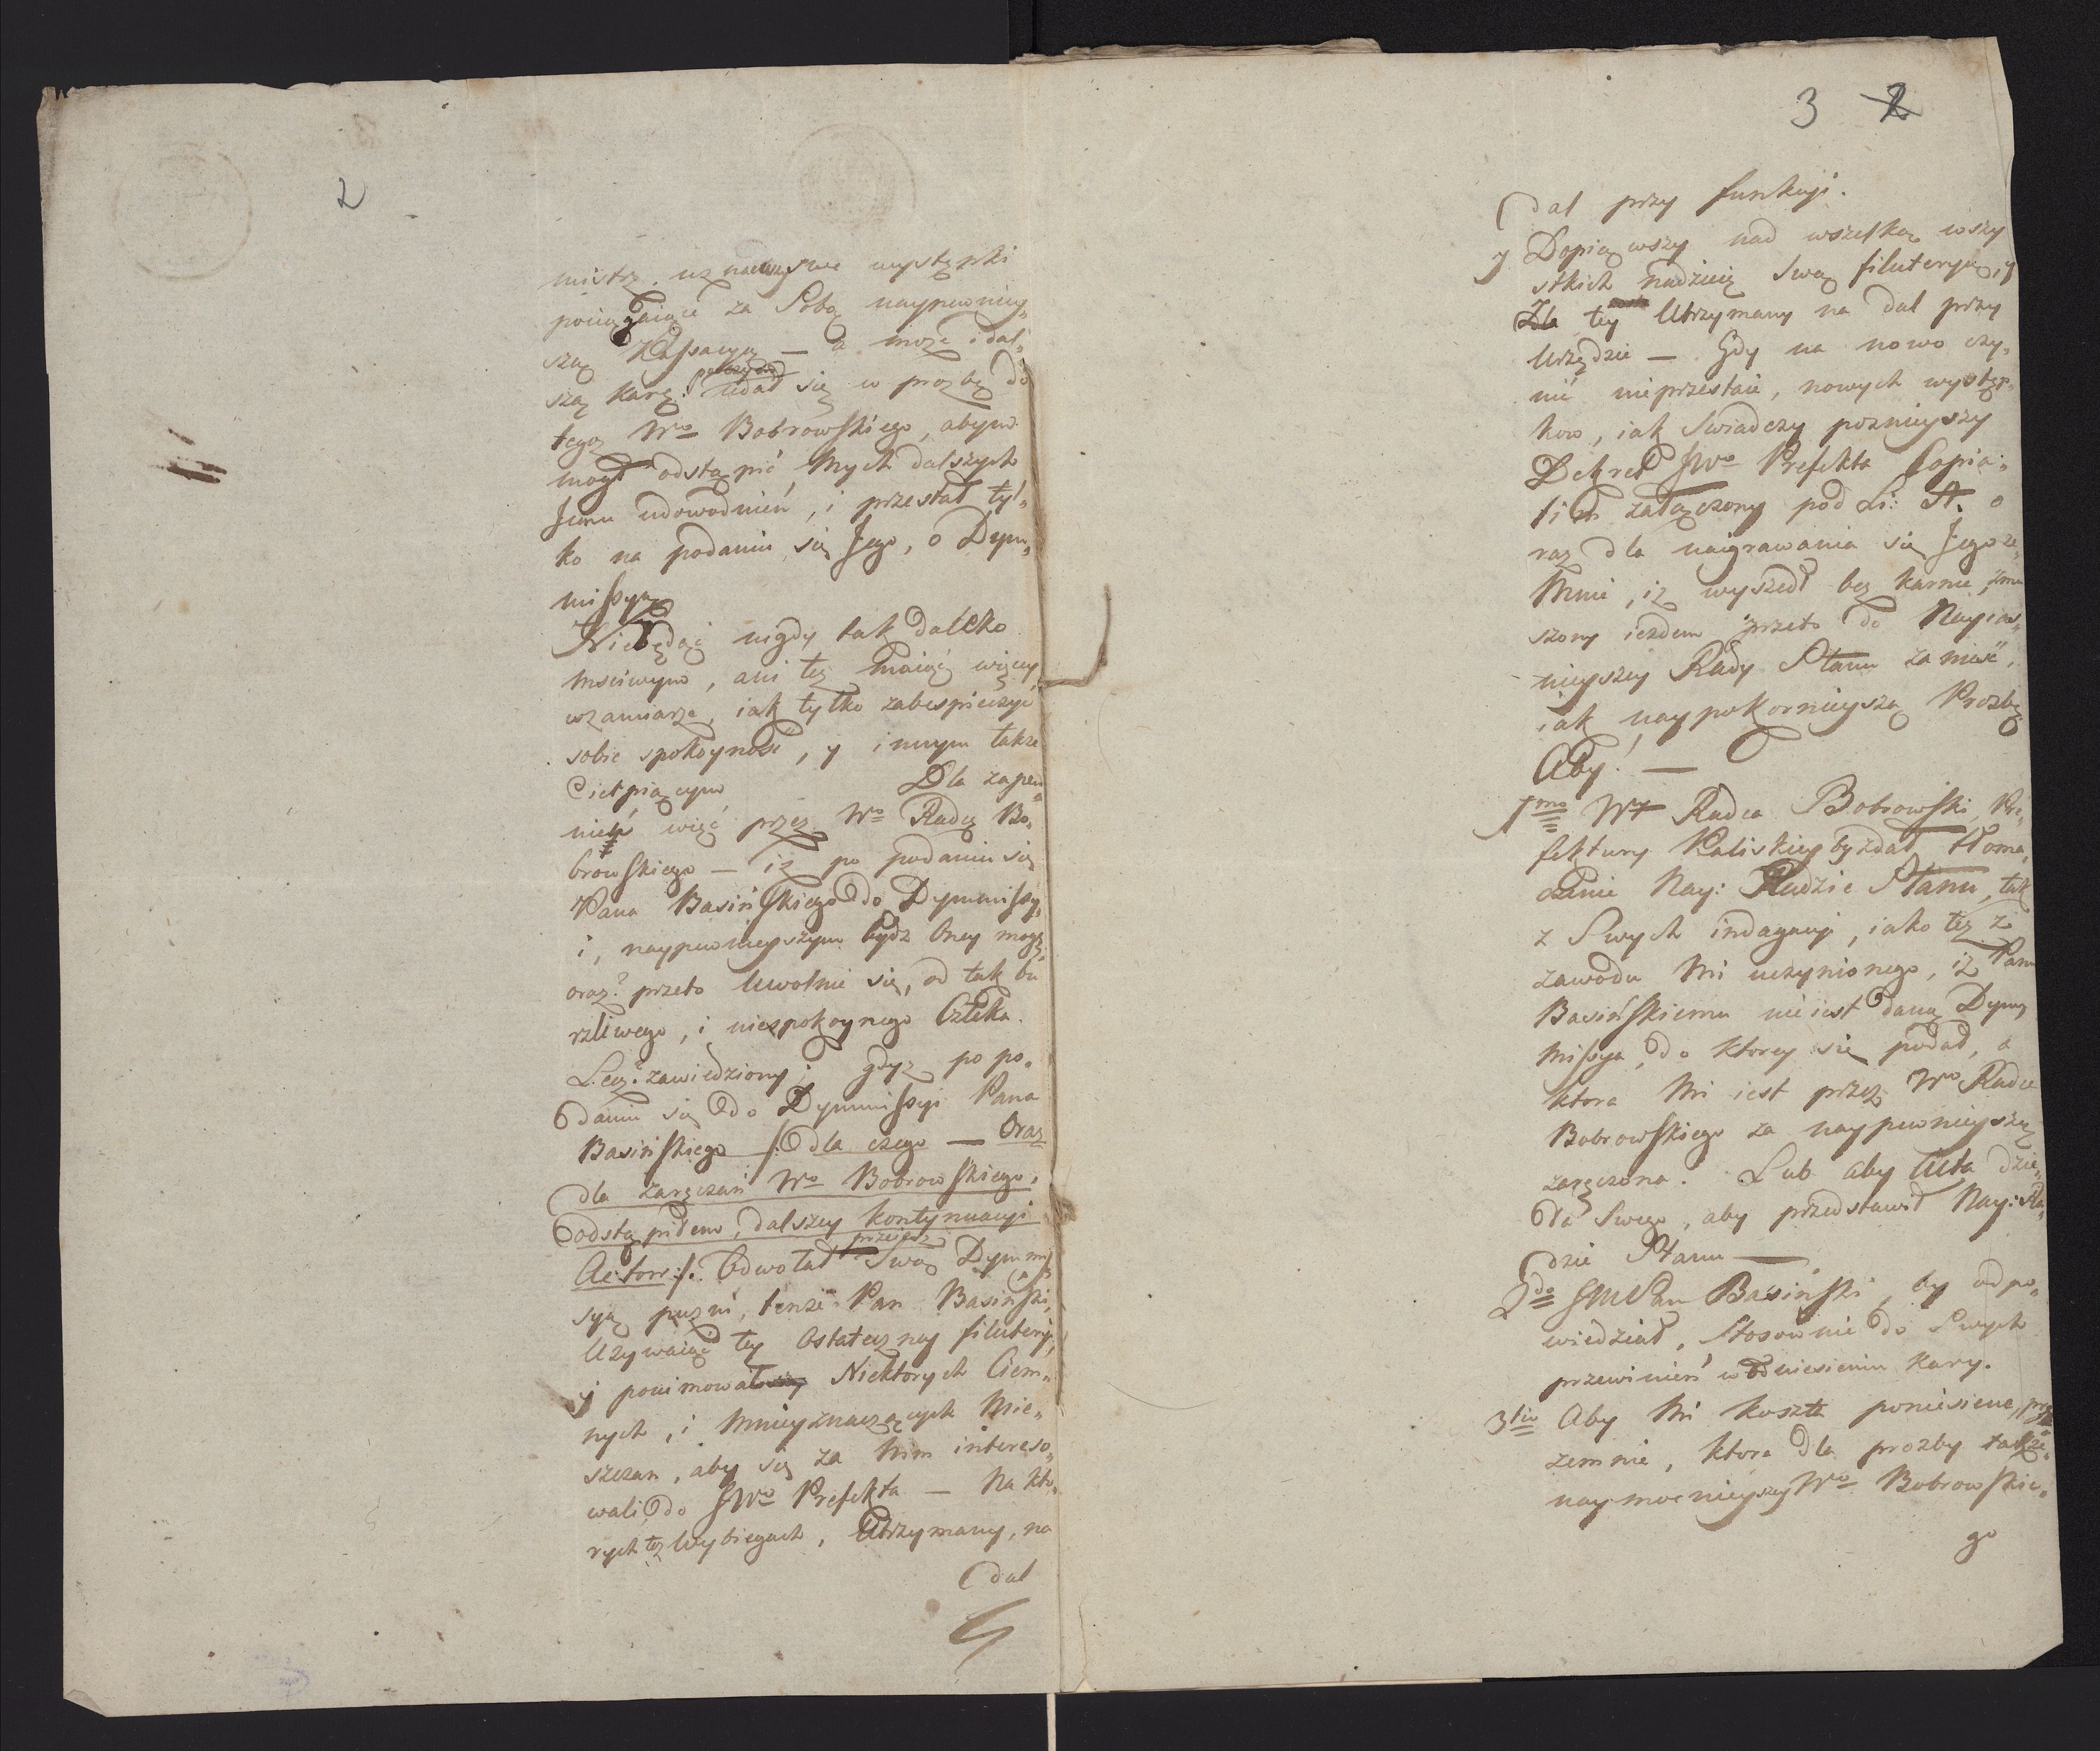 2
mistrz. uznawszy swe występki
pociągaiące za Sobą naypewniey„
szą Kassacyą — a może i dal„
szą karę. udał się w proźbę do
tegoż Wo Bobrowskiego, abym
mogł odstąpić Mych dalszych
Jemu udowodnień, i przestał tyl„
ko na podaniu się Jego, o Dym„
missyą
Niebędąć nigdy tak daleko
mściwym, ani też maiąć więcey
wzamiarze, iak tylko zabespieczyć
sobie spokoyność, y innym także
Cierpiącym Dla zapew„
nień więć przez Wo Radcę Bo„
browskiego — iż po podaniu się
Pana Basińskiego do Dymmissy„
i, naypewnieyszym bydz Oney mogę.
oraz? przeto Uwolnie się, od tak bu
rzliwego, i niespokoynego Człeka.
Lecz? zawiedziony; gdyż po po„
daniu się do Dymmissyi Pana
Basińskiego /: dla czego — Oraz
dla zaręczań Wo Bobrowskiego,
odstąpiłem, dalszey kontynuacyi
Actow :/. Odwołał przecież Swoą Dymmis
syą puzni, tenże Pan Basiński,
Używaiąć tey Ostateczney filuteryi,
y ponimował Niektorych Ciem„
nych, i Mnieyznaczących Mie„
szczan, aby się za Nim intereso„
wali, do JWo Prefekta — Na kto„
rych też Wybiegach, Utrzymany, na
dal
3 2
dal przy funkcyi.
y Dopiąwszy nad wszelką wszy
stkich nadzieię Swą filuteryą, y
Dla tey Utrzymany na dal przy
Urzędzie — Gdy na nowo czy„
nić nieprzestaie, nowych występ„
kow, iak Swiadczy poznieyszy
Dekret JWo Prefekta Copia„
tim załączony pod Li: A. o
raz dla naigrawania się Jego ze
Mnie, iż wyszedł bez karnie, zmu
szony iezdem przeto do Nayias„
nieyszey Rady Stanu zanieść,
iak naypokornieyszą Prozbę
Aby! —
1mo Wy Radca Bobrowski, Pre„
fektury Kaliskiey by zdał tłoma„
czenie Nay: Radzie Stanu, tak
z Swych indagacyi, iako też z
zawodu Mi uczynionego, iż Panu
Basińskiemu nie iest daną Dym„
missya, do ktorey się podał, a
ktora Mi iest przez Wo Radcę
Bobrowskiego za naypewnieyszą
zaręczona. Lub aby Acta dzie„
ła Swego, aby przedstawił Nay: Ra„
dzie Stanu —
2do JMPan Basiński, by odpo„
wiedział, Stosownie do Swych
przewinień w odniesieniu Kary.
3tio Aby Mi koszta poniesiene, prze
zemnie, ktore dla prozby także
naymocnieyszey Wo Bobrowskie„
go